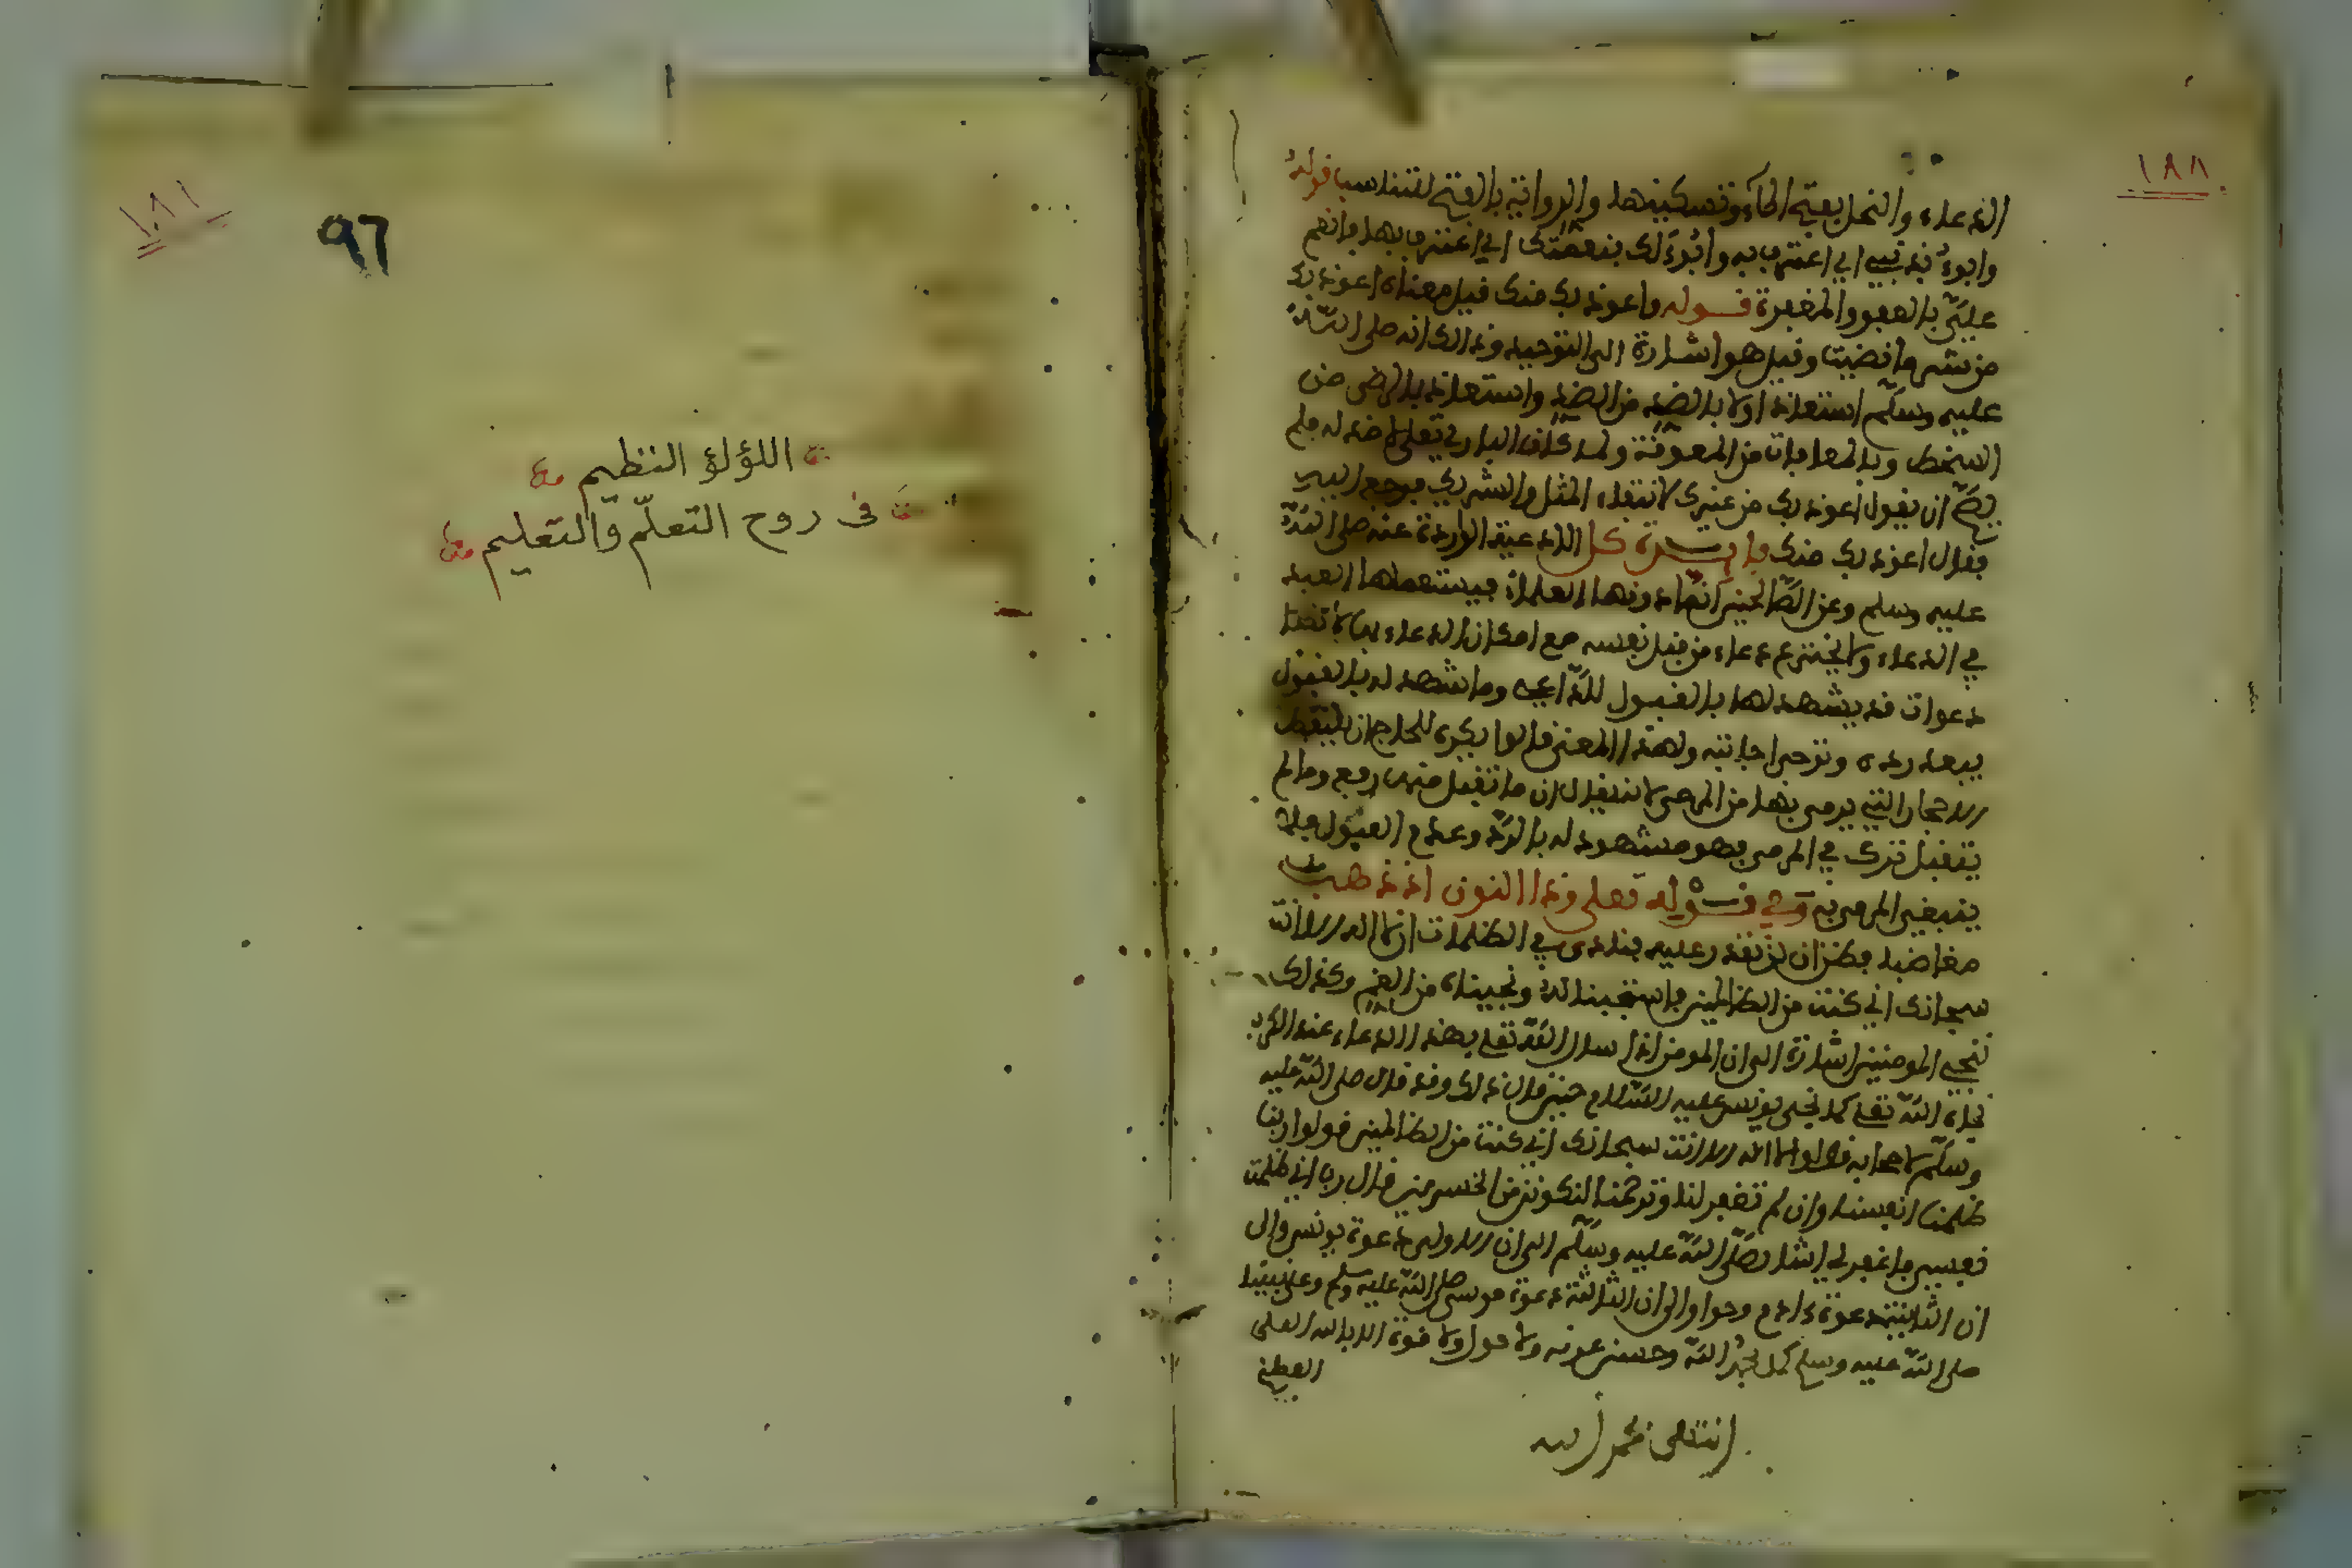 ١٨٨
الدعاء والنحل بفتح الحاء وتسكينها والرواية بالفتح لتناسب قوله
وابوء بذنبي اي اعترف به وابوء لك بنعمتك اي اعترف بها فانعم
علي بالعفو والمغفرة قوله واعوذ بك منك قيل معناه اعوذ بك
من شر ما قضيت وقيل هو اشارة الى التوحيد وذالك انه صلى الله
عليه وسلم استعاذ اولا بالضد من الضد واستعاذ بالرضى من
السخط وبالمعافات من العقوبة ولما كان الباري تعلى لا ضد له فلم
يصح ان يقول اعوذ بك من غيرك لانتفاء المثل والشريك فرجع اليه
فقال اعوذ بك منك فايدة كل الادعية الواردة عنه صلى الله
عليه وسلم وعن الصالحين انما دونها العلماء فيستعملها العبد
في الدعاء ولا يخترع دعاء من قبل نفسه مع امكان الدعاء
دعوات قد يشهد لها بالقبول للداعي وما شهد له بالقبول
يبعد رده وترجى اجابته ولهذا المعنى قالوا يكره للحاج ان يلتقط
الاحجار التي يرمى بها من المرمى لانه يقال ان ما تقبل منها رفع وما لم
يتقبل ترك في المرمى فهو مشهود له بالرد وعدم القبول فلا
ينبغي الرمي به وفي قوله تعلى وذا النون اذ ذهب
مغاضبا فظن ان لن نقدر عليه فنادى في الظلمات ان لا اله الا انت
سبحانك اني كنت من الظالمين فاستجبنا له ونجيناه من الغم وكذلك
ننجي المومنين اشارة الى ان المومن اذا سال الله تعلى بهذا الدعاء عند الكرب
نجاه الله تعلى كما نجى يونس عليه السلام حين قال ذلك وقد قال صلى الله عليه
وسلم لاصحابه قولوا لا اله الا انت سبحانك اني كنت من الظالمين قولوا ربنا
ظلمنا انفسنا وان لم تغفر لنا وترحمنا لنكونن من الخسرين قال رب اني ظلمت
نفسي فاغفر لي اشار صلى الله عليه وسلم الى ان الاولى دعوة يونس والى
ان الثانية دعوة ءادم وحوا والى ان الثالثة دعوة موسى صلى الله عليه وسلم وعلى نبينا
صلى الله عليه وسلم كمل بحمد الله وحسن عونه ولا حول ولا قوة الا بالله العلي
العظيم
انتهى بحمد الله
٩٦
اللؤلؤ النظيم
فى روح التعلّم والتعليم